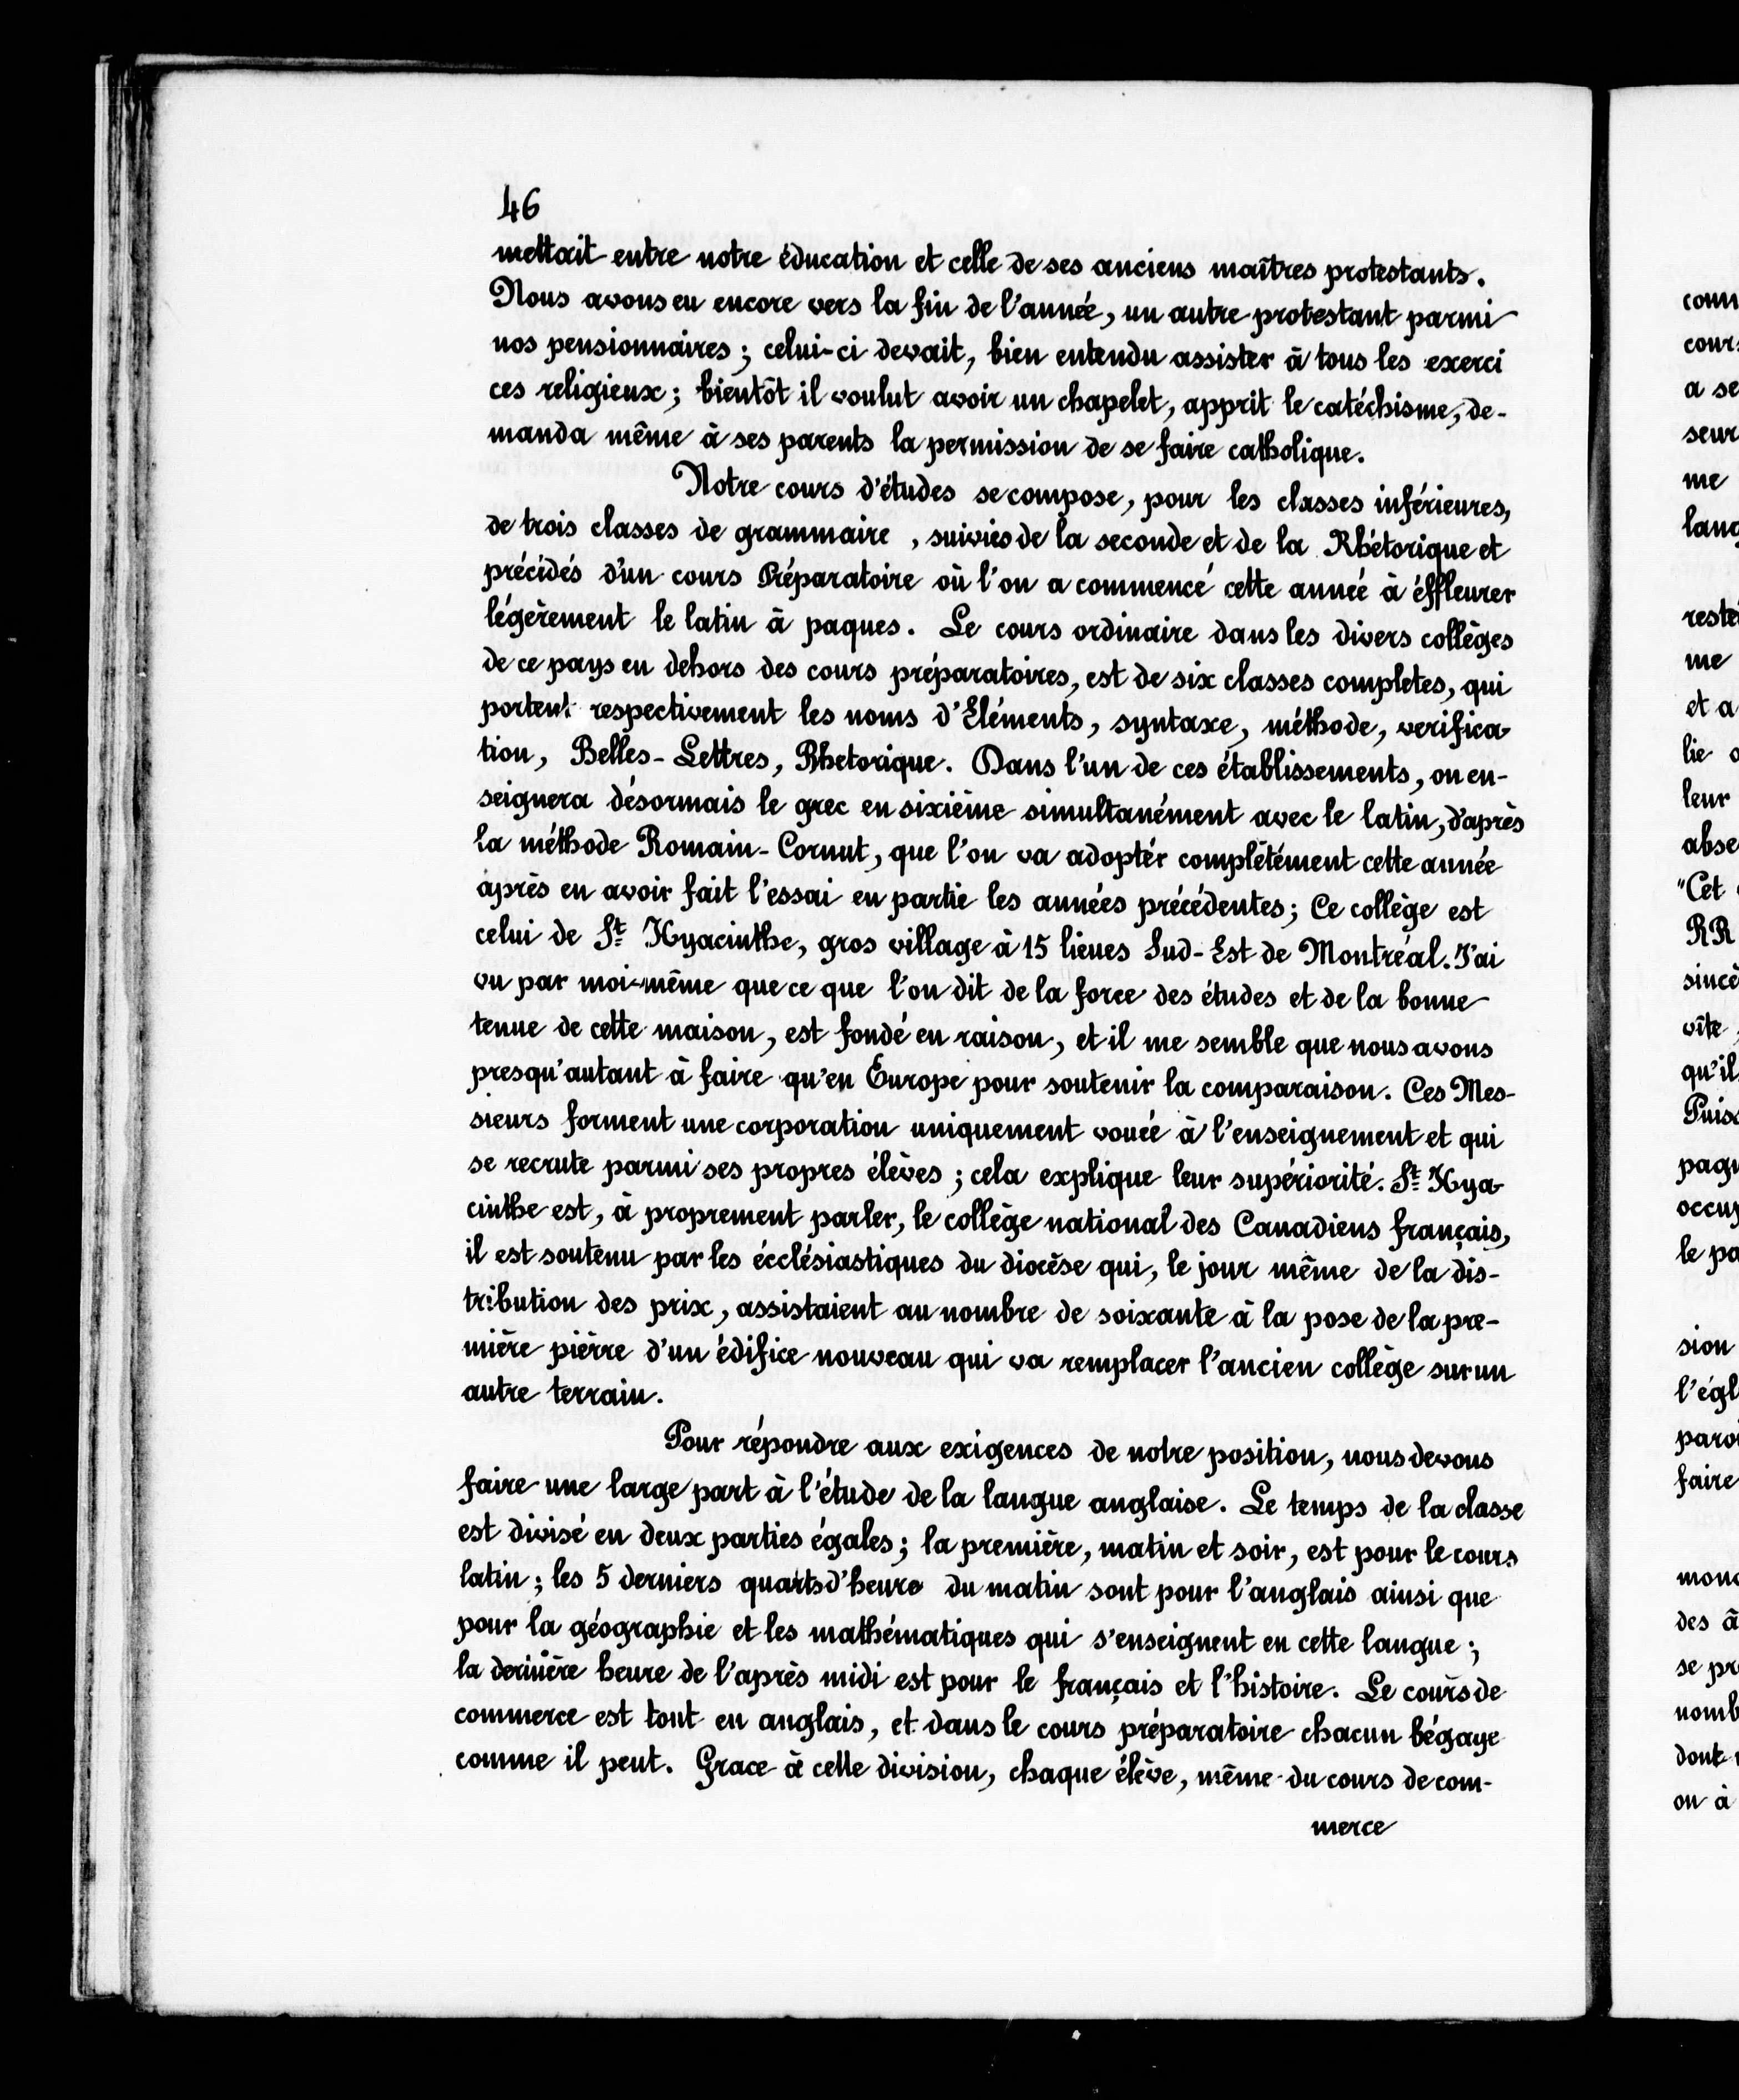 46
mettait entre notre éducation et celle de ses anciens maîtres protestants.
Nous avons eu encore vers la fin de l'année, un autre protestant parmi
nos pensionnaires ; celui-ci devait, bien entendu assister à tous les exerci
ces religieux ; bientôt il voulut avoir un chapelet, apprit le catéchisme, de-
manda même à ses parents la permission de se faire catholique.
Notre cours d'études se compose, pour les classes inférieures,
de trois classes de grammaire , suivies de la seconde et de la Rhétorique et
précidés d'un cours Préparatoire où l'on a commencé cette année à éffleurer
légèrement le latin à paques. Le cours ordinaire dans les divers collèges
de ce pays en dehors des cours préparatoires, est de six classes completes, qui
portent respectivement les noms d'Eléments, syntaxe, méthode, verifica
tion, Belles-Lettres, Rhetorique. Dans l'un de ces établissements, on en-
seignera désormais le grec en sixième simultanément avec le latin, d'après
la méthode Romain-Cornut, que l'on va adoptér complètément cette année
après en avoir fait l'essai en partie les années précédentes ; Ce collège est
celui de St Hyacinthe, gros village à 15 lieues Sud-Est de Montréal. J'ai
vu par moi-même que ce que l'on dit de la force des études et de la bonne
tenue de cette maison, est fondé en raison, et il me semble que nous avons
presqu'autant à faire qu'en Europe pour soutenir la comparaison. Ces Mes-
sieurs forment une corporation uniquement vouée à l'enseignement et qui
se recrute parmi ses propres élèves ; cela explique leur supériorité. St Hya
cinthe est, à proprement parler, le collège national des Canadiens français,
il est soutenu par les écclésiastiques du diocèse qui, le jour même de la dis-
tribution des prix, assistaient au nombre de soixante à la pose de la pre-
mière pièrre d'un édifice nouveau qui va remplacer l'ancien collège sur un
autre terrain.
Pour répondre aux exigences de notre position, nous devons
faire une large part à l'étude de la langue anglaise. Le temps de la classe
est divisé en deux parties égales ; la première, matin et soir, est pour le cours
latin ; les 5 derniers quarts d'heure du matin sont pour l'anglais ainsi que
pour la géographie et les mathématiques qui s'enseignent en cette langue ;
la dernière heure de l'après midi est pour le français et l'histoire. Le cours de
commerce est tout en anglais, et dans le cours préparatoire chacun bégaye
comme il peut. Grace à cette division, chaque élève, même du cours de com-
merce